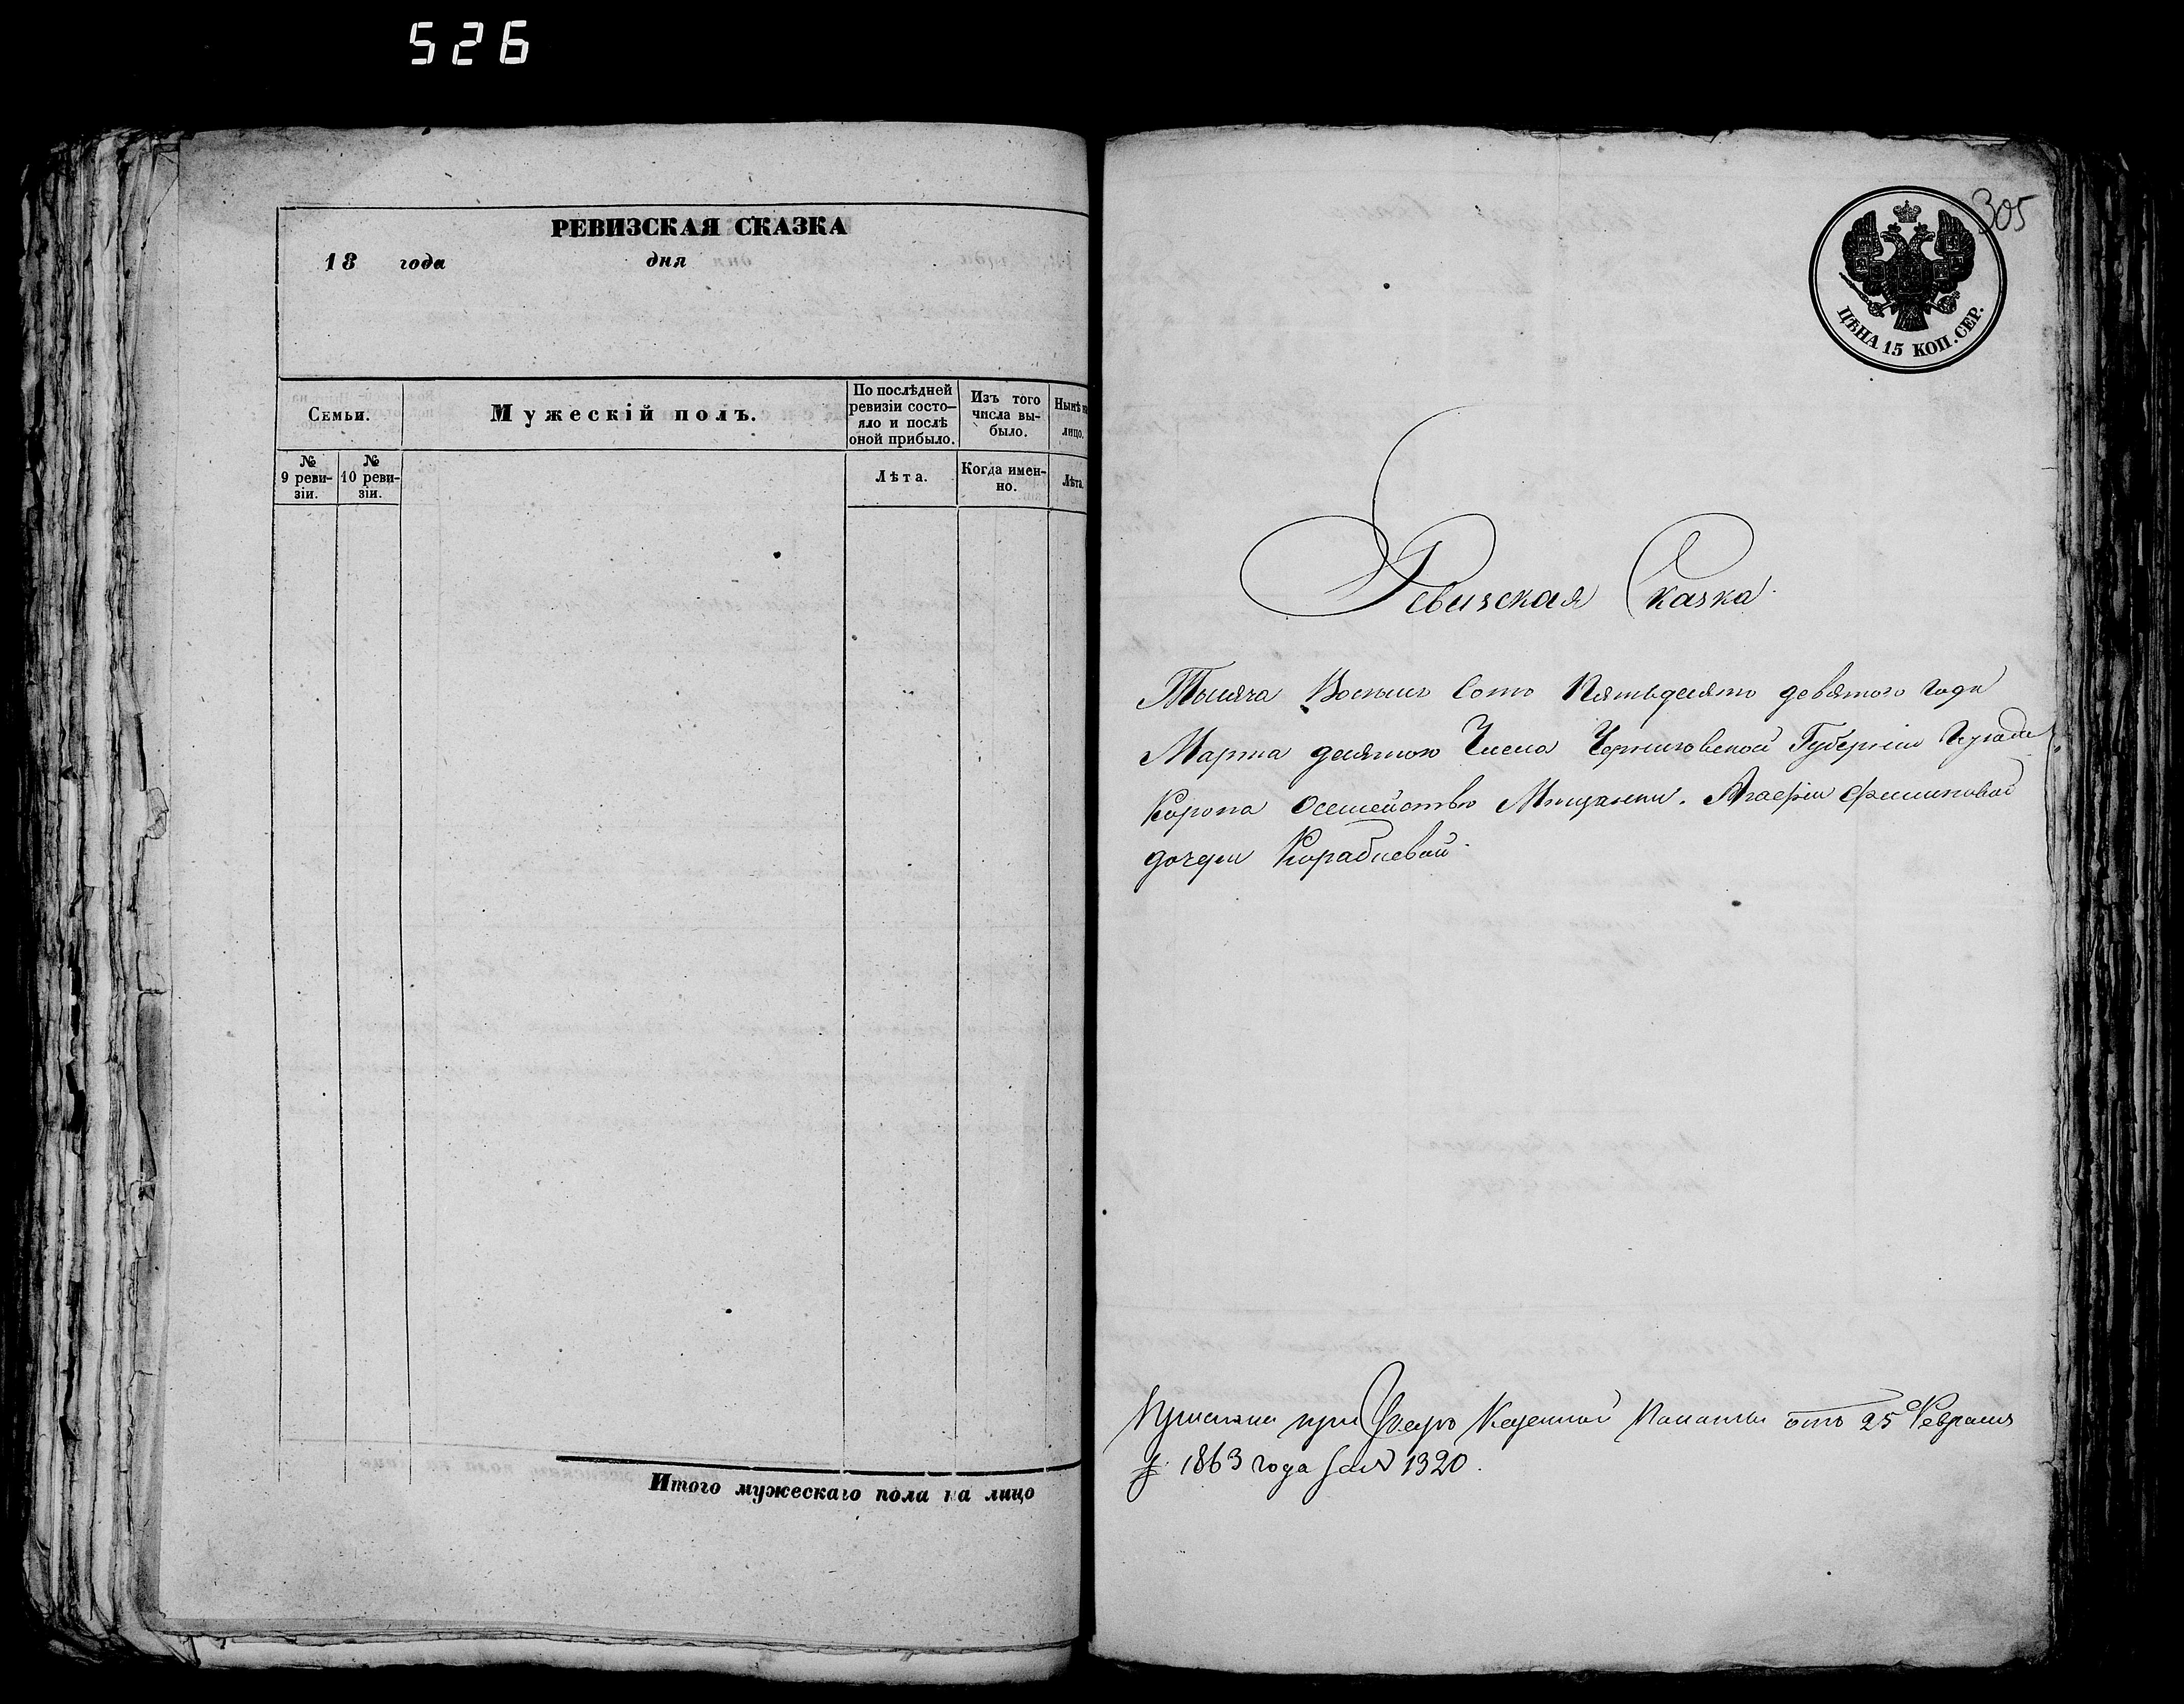 526
РЕВИЗСКАЯ СКАЗКА
18 года дня
Семьи.
Мужескій полъ.
По послѣдней ревизіи состо-
яло и послѣ оной прибыло.
Изъ того числа вы-
было.
Нынѣ на лицо.
№ 9 реви-
зіи.
№ 10 реви-
зіи.
Лѣта.
Когда имен-
но.
Лѣта.
Итого мужескаго пола на лицо
305
ЦѢНА 15 КОП. СЕР.
Ревизская Сказка
Тысяча Восемь Сотъ Пятьдесятъ девятого года
Марта десятого Числа Черниговской Губерніи Города
Коропа о семействѣ Мѣщанки. Агафіи Филиповой
дочери Корабневой
при Указѣ Казенной Палаты отъ 25 Февраля
1863 года за № 1320.